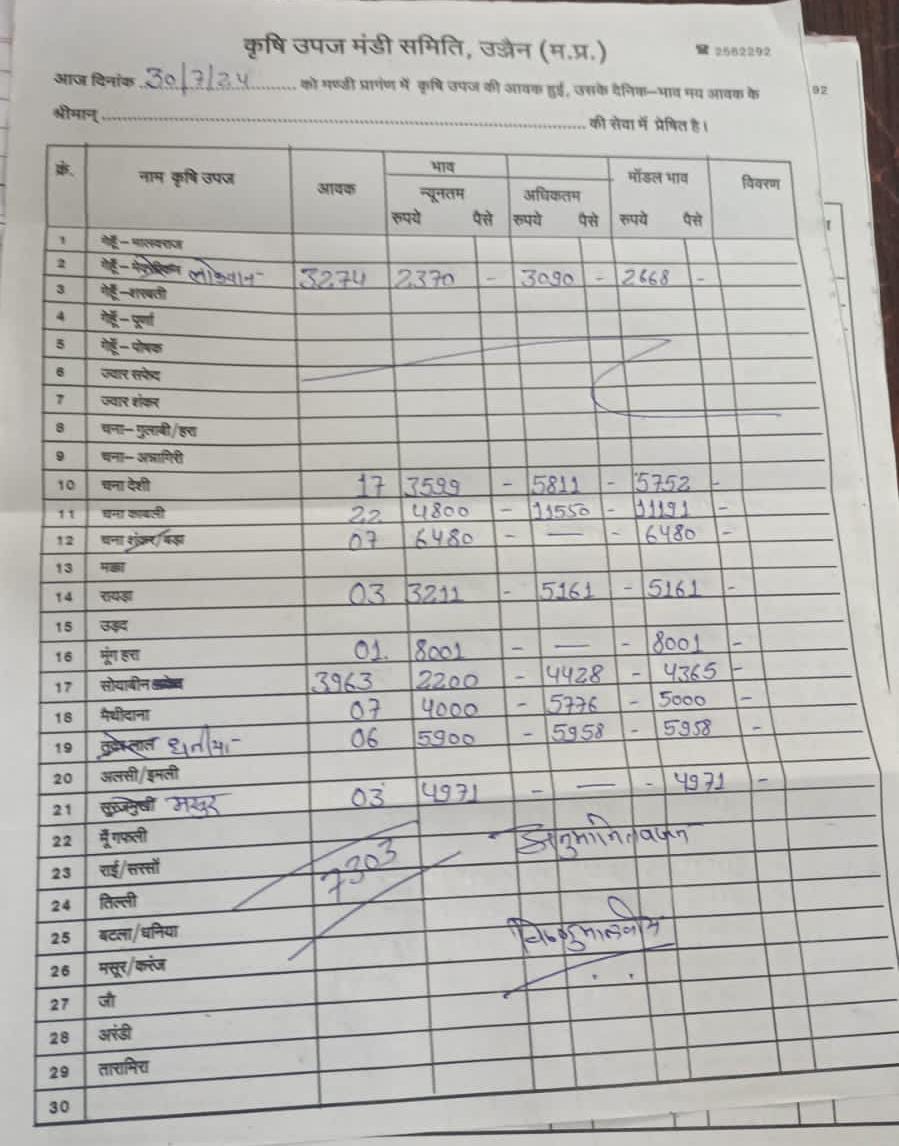 कृषि उपज मंडी समिति, उज्जैन (म.प्र.) ☎ 2562292
आज दिनांक 30/7/24 को मण्डी प्रागंण में कृषि उपज की आवक हुई, उसके दैनिक-भाव मय आवक के
92
श्रीमान् की सेवा में प्रेषित है।
क्रं. नाम कृषि उपज आवक भाव मॉडल भाव विवरण
न्यूनतम अधिकतम
रुपये पैसे रुपये पैसे रुपये पैसे
1 गेहूँ-मालवराज
2 गेहूँ- लोकवान 3274 2370 - 3090 - 2668 -
3 गेहूँ-शरबती
4 गेहूँ-पूर्णा
5 गेहूँ-पोषक
6 ज्वार सफेद
7 ज्वार शंकर
8 चना-गुलाबी/हरा
9 चना-अन्नागिरी
10 चना देशी 17 3599 - 5811 - 5752 -
11 चना काबली 22 4800 - 11550 - 11191 -
12 चना शंकर/बड़ा 07 6480 - — - 6480 -
13 मक्का
14 रायड़ा 03 3211 - 5161 - 5161 -
15 उड़द
16 मूंग हरा 01. 8001 - — - 8001 -
17 सोयाबीन 3963 2200 - 4428 - 4365 -
18 मैथीदाना 07 4000 - 5776 - 5000 -
19 लाल धनीया 06 5900 - 5958 - 5958 -
20 अलसी/इमली
21 सूरजमुखी मसूर 03 4971 - — - 4971 -
22 मूँगफली
23 राई/सरसों 7303 अनुमानित वजन
24 तिल्ली
25 बटला/धनिया
26 मसूर/करंज
27 जौ
28 अरंडी
29 तारामिरा
30